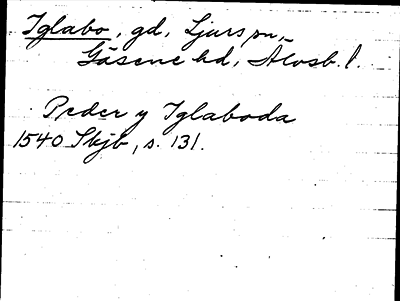 Iglabo, gd, Ljurs sn,
Gäsene hd, Älvsb. l.
Peder y Iglaboda
1540 Skjb, s. 131.